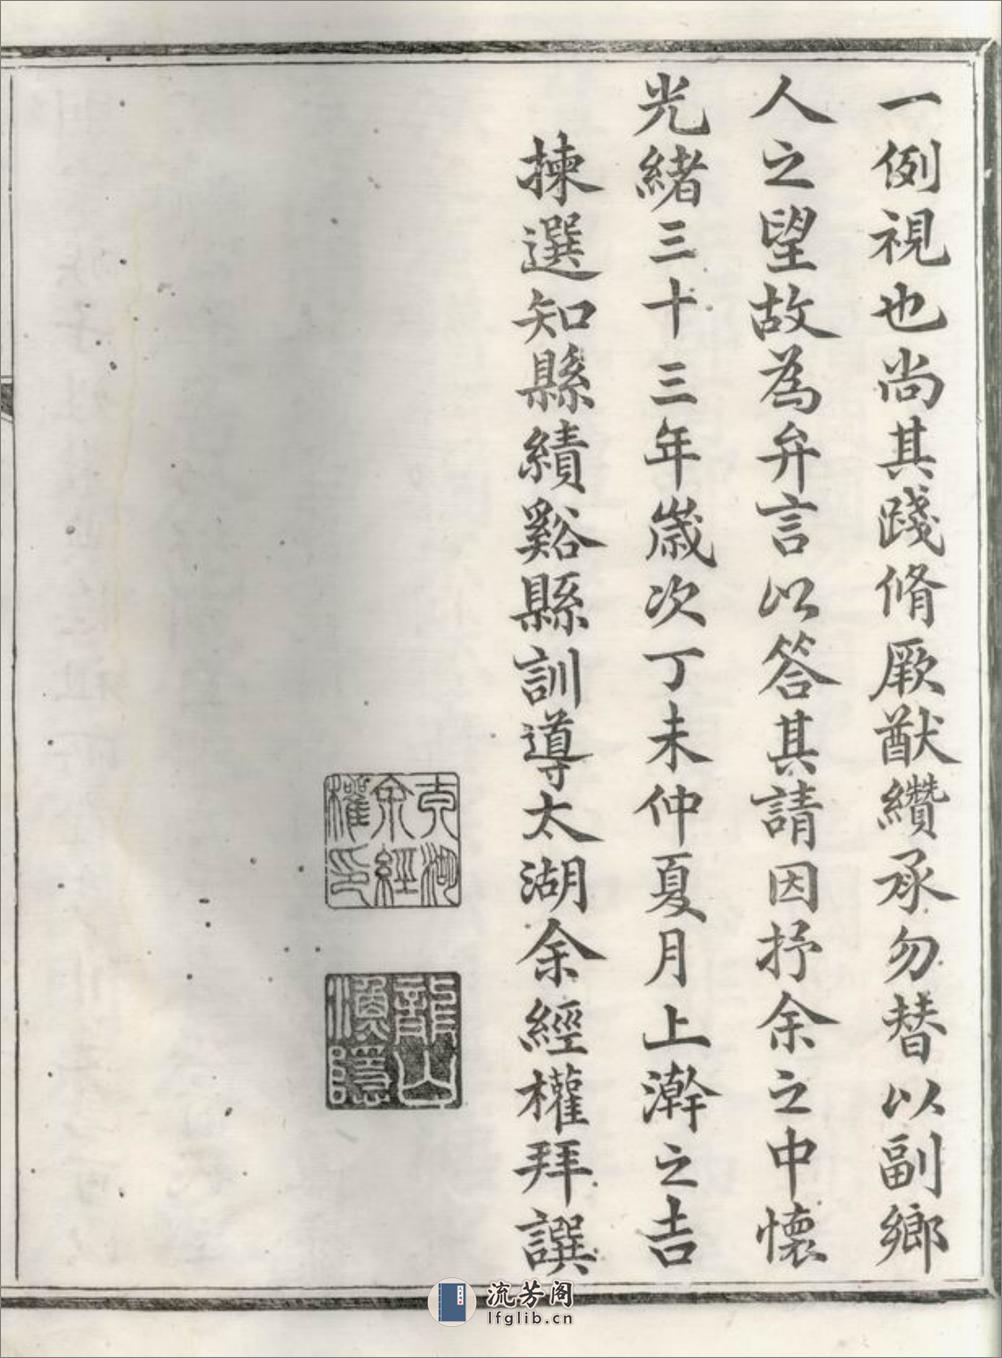 一例視也尚其踐脩厥猷纘承勿替以副鄉
人之望故為弁言以答其請因抒余之中懷
光緒三十三年歲次丁未仲夏月上澣之吉
揀選知縣績谿縣訓導太湖余經權拜譔
余經
權印
龍山
隱
流芳阁
lfglib.cn